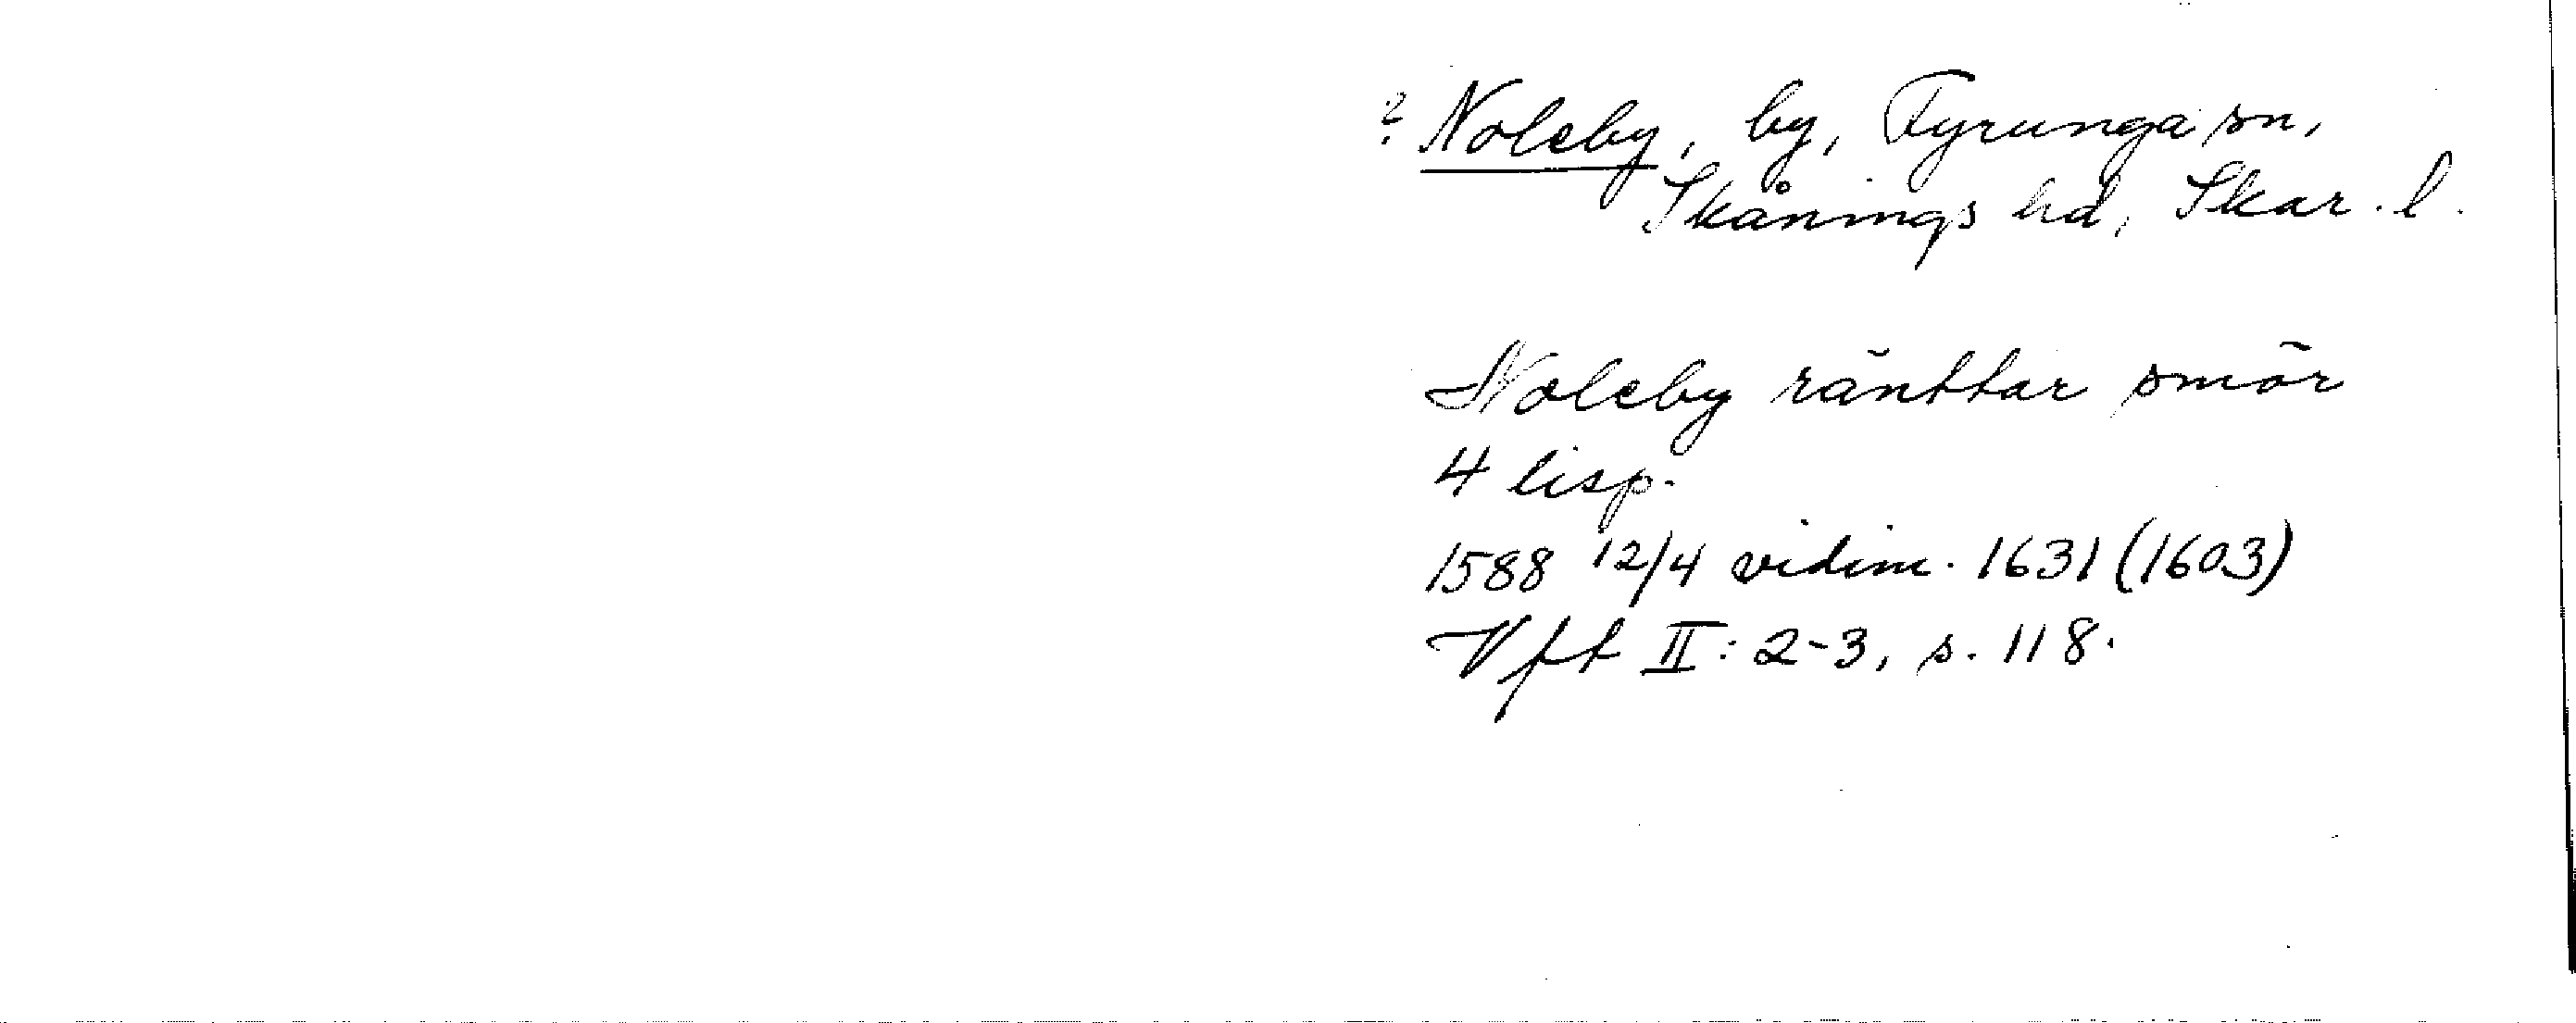 ? Noleby, by, Fyrunga sn,
Skånings hd, Skar. l.
Noleby ränttar smör
4 lisp.
1588 12/4 vidim. 1631 (1603)
Vft II: 2-3, s. 118.